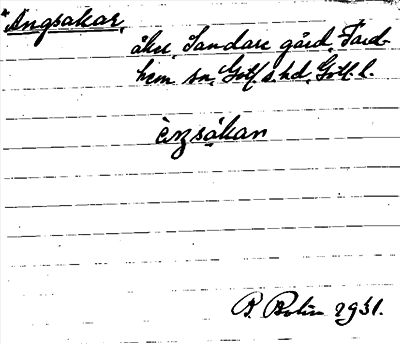 *Ängsåkar,
åker, Sandare gård, Fard-
hem sn, Gotl. s. hd, Gotl. l.
èŋsåkan
B. Bolin 1931.